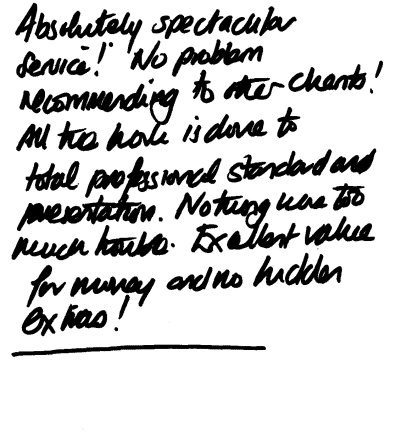 Absolutely spectacular
Service! No problem
recommending to other clients!
All the work is done to
total professional standard and
presentation. Nothing was too
much trouble. Excellent value
for money and no hidden
extras!